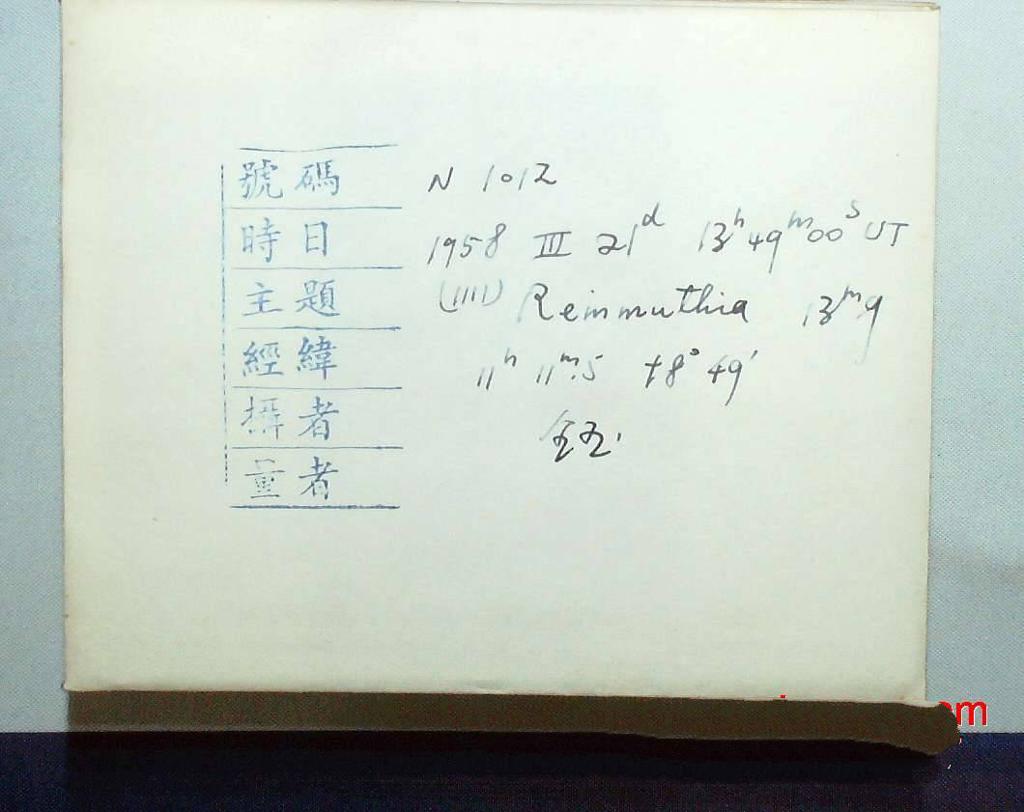 號碼 N 1012
時日 1958 III 21d 13h 49m 00s UT
主題 (1111) Reinmuthia 13m9
經緯 11h 11m.5 +8° 49'
攝者
量者